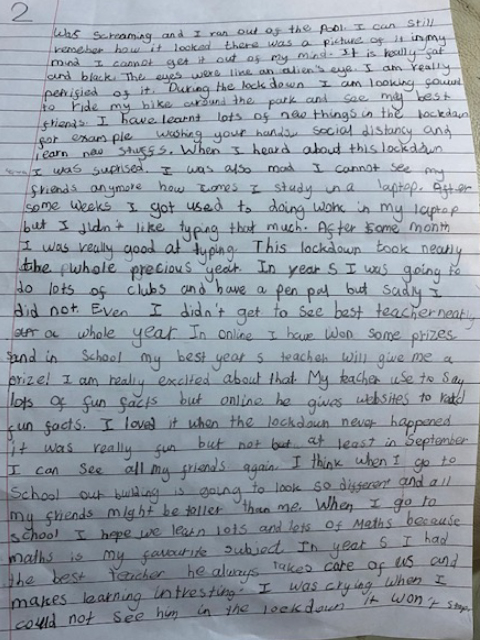 2
was screaming and I ran out of the pool. I can still
remeber how it looked there was a picture of it in my
mind I cannot get it out of my mind. It is really fat
and black. The eyes were like an alien's eye. I am really
petrified of it. During the lockdown I am looking forward
to ride my bike around the park and see my best
friends. I have learnt lots of new things in the lockdown
for example washing your hands, social distancy and
learn new stuffs. When I heard about this lockdown
I was suprised. I was also mad I cannot see my
friends anymore how comes I study in a laptop. After
some weeks I got used to doing work in my laptop
but I didn't like typing that much. After some month
I was really good at typing. This lockdown took neatly
the whole precious year. In year 5 I was going to
do lots of clubs and have a pen pal but sadly I
did not. Even I didn't get to see best teacher neatly
a whole year. In online I have won some prizes
and in school my best year 5 teacher will give me a
prize! I am really excited about that. My teacher use to say
lots of fun facts but online he gives websites to read
fun facts. I loved it when the lockdown never happened
it was really fun but not but at least in September
I can see all my friends again. I think when I go to
School our building is going to look so different and all
my friends might be taller than me. When I go to
school I hope we learn lots and lots of Maths because
maths is my favourite subject. In year 5 I had
the best teacher he always takes care of us and
makes learning intresting. I was crying when I
could not see him in the lockdown it won't stop